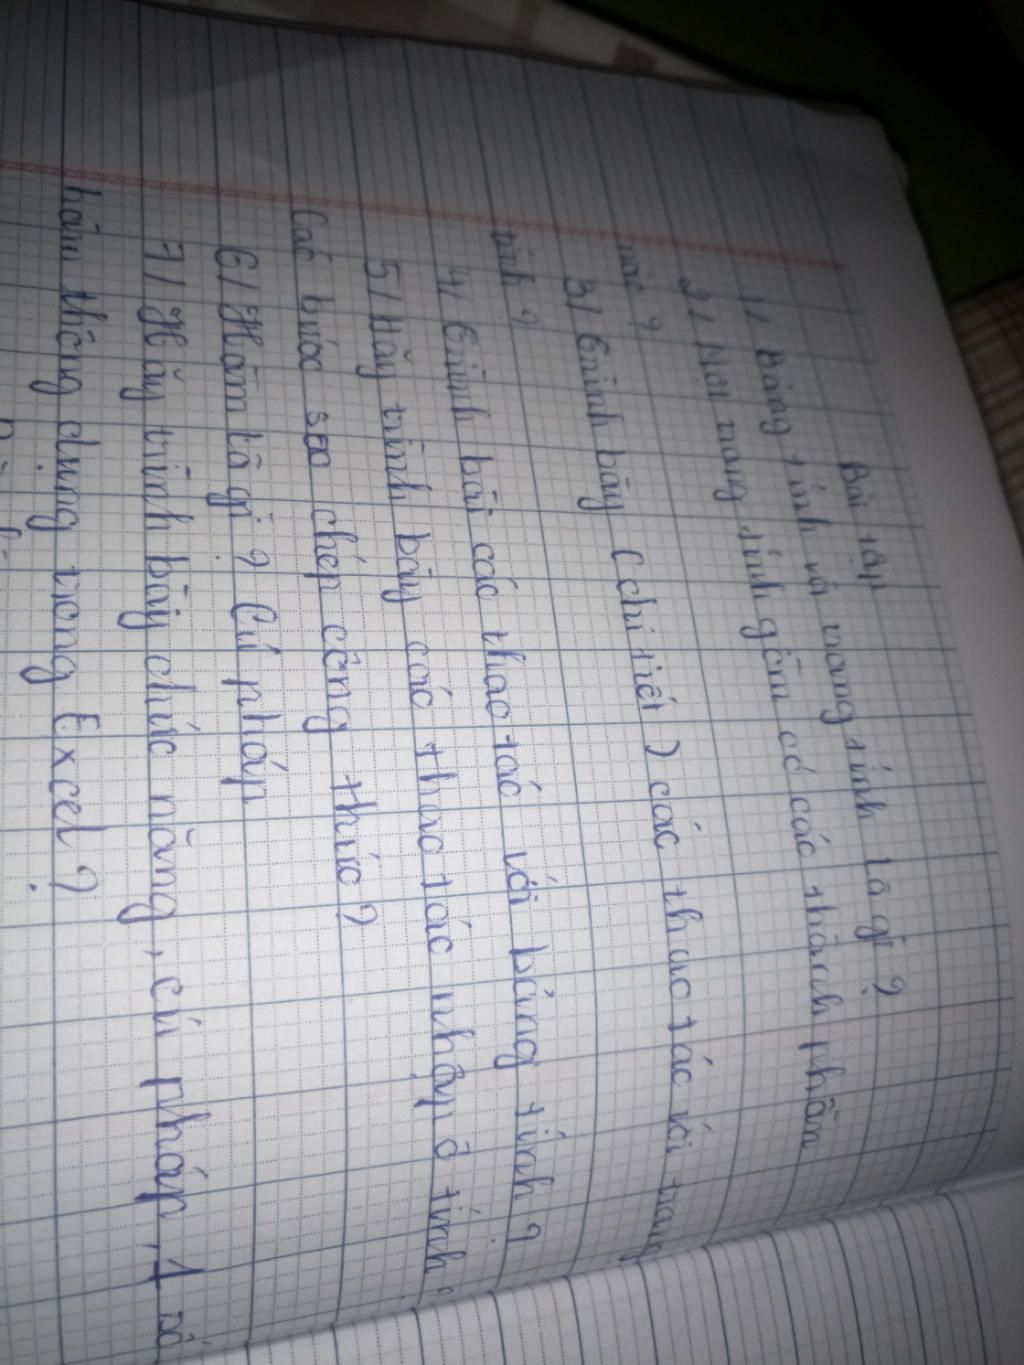 Bài tập
1/ Bảng tính và trang tính là gì ?
2/ Một trang tính gồm có các thành phần
nào ?
3/ Trình bày ( chi tiết ) các thao tác với trang
tính ?
4/ Trình bài các thao tác với bảng tính ?
5/ Hãy trình bày các thao tác nhập ô tính
Các bước sao chép công thức ?
6/ Hàm là gì ? Cú pháp
7/ Hãy trình bày chức năng, cú pháp, 1 số
hàm thông dụng trong Excel ?